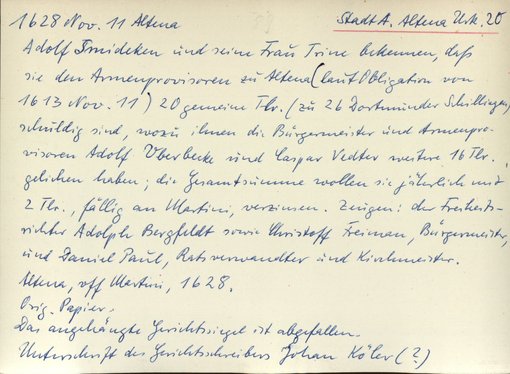 1628 Nov. 11 Altena StadtA. Altena Urk. 20
Adolf Smideken und seine Frau Trine bekennen, daß
sie den Armenprovisoren zu Altena (laut Obligation von
1613 Nov. 11) 20 gemeine Tlr. (zu 26 Dortmunder Schillingen)
schuldig sind, wozu ihnen die Bürgermeister und Armenpro-
visoren Adolf Überbecke und Caspar Vedter weitere 16 Tlr.
geliehen haben; die Gesamtsumme wollen sie jährlich mit
2 Tlr., fällig an Martini, verzinsen. Zeugen: der Freiheits-
richter Adolph Bergfeldt sowie Christoff Freiman, Bürgermeister,
und Daniel Paul, Ratsverwandter und Kirchmeister.
Altena, vff Martini, 1628.
Orig. Papier.
Das angehängte Gerichtssiegel ist abgefallen.
Unterschrift des Gerichtsschreibers Johan Köler (?)